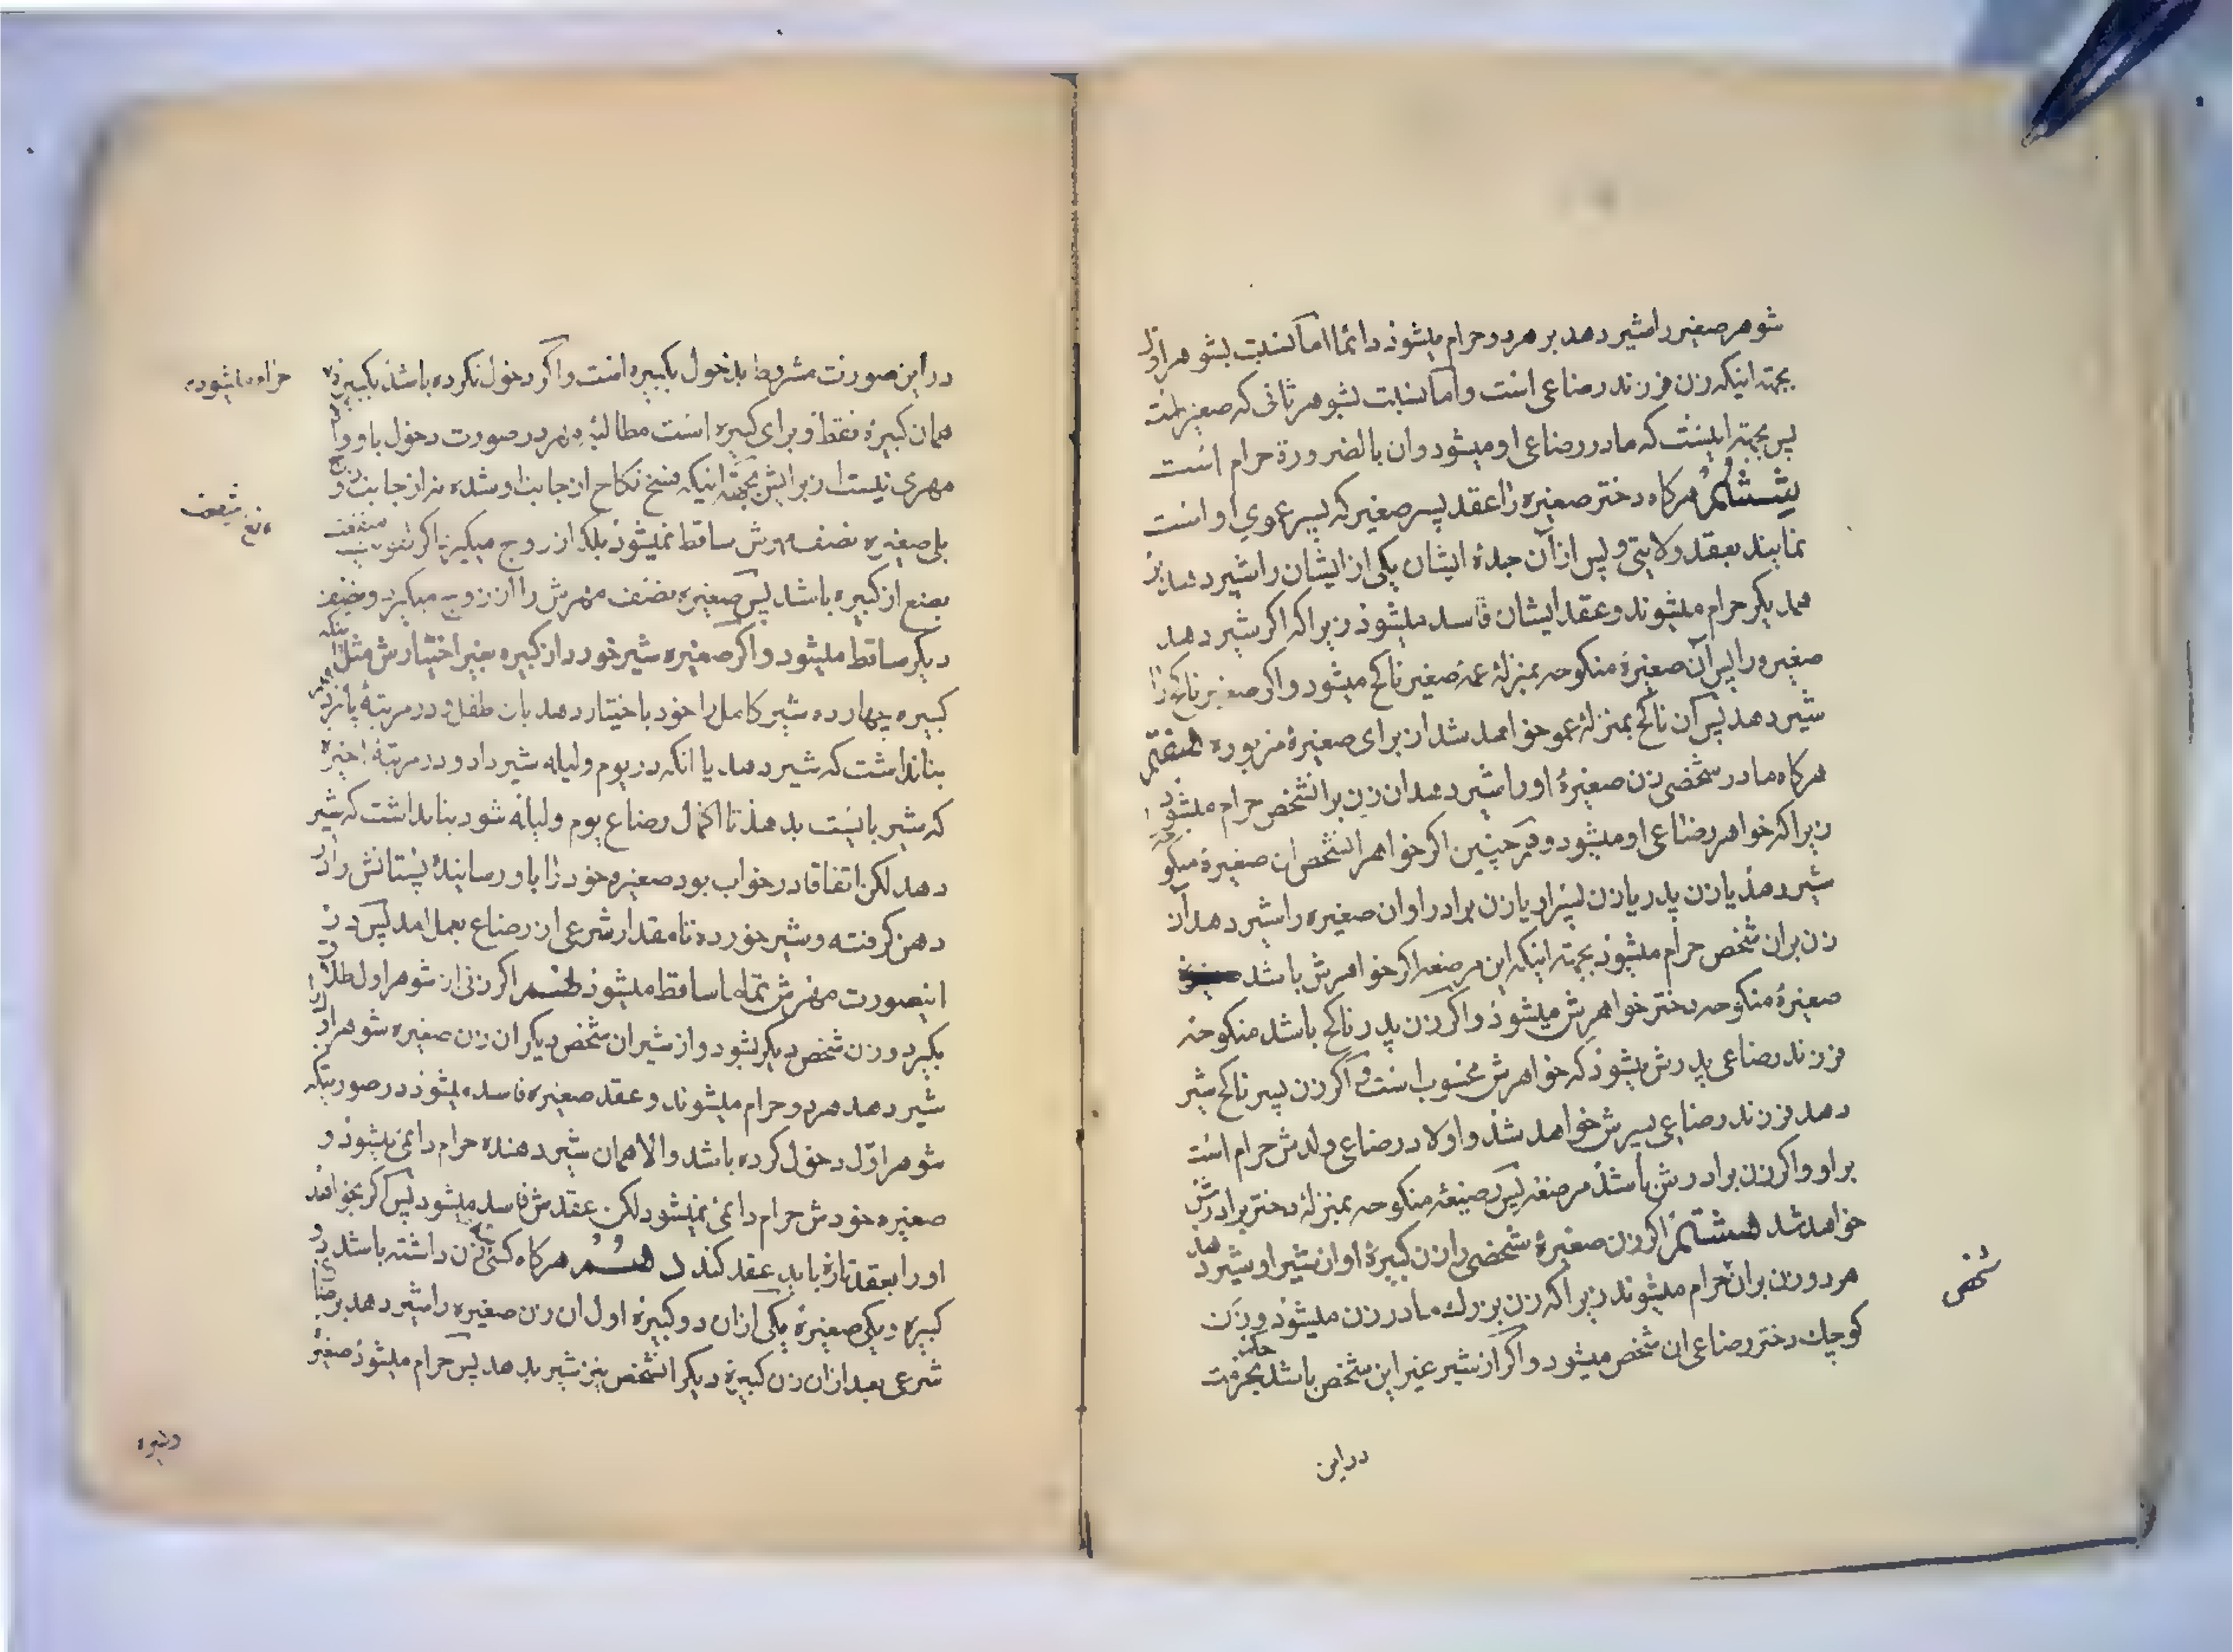 شوهر صغیر را شیر دهد بر هر دو حرام میشود دائما اما نسبت بشوهر اول
بجهته اینکه زن فرزند رضاعی است و اما نسبت بشوهر ثانی که صغیر است
پس بجهته اینست که مادر رضاعی او میشود و ان بالضرورة حرام است
ششم هرکاه دختر صغیره را عقد پسر صغیر که پسر عموی او است
نمایند بعقد ولایتی و پس از آن جدهٔ ایشان یکی از ایشان را شیر دهد بر
همدیکر حرام میشوند و عقد ایشان فاسد میشود زیرا که اکر شیر دهد
صغیره را پس آن صغیرهٔ منکوحه بمنزلهٔ عمهٔ صغیر ناکح میشود و اکر صغیر ناکح را
شیر دهد پس آن ناکح بمنزلهٔ عمو خواهد شد از برای صغیرهٔ مزبوره هفتم
هرکاه مادر شخصی زن صغیرهٔ او را شیر دهد ان زن بر انشخص حرام میشود
زیرا که خواهر رضاعی او میشود و همچنین اکر خواهر انشخص ان صغیرهٔ منکوحه
شیر دهد یا زن پدر یا زن پسر او یا زن برادر او ان صغیره را شیر دهد آن
زن بران شخص حرام میشود بجهته اینکه این مرضعه اکر خواهرش باشد
صغیرهٔ منکوحه دختر خواهرش میشود و اکر زن پدر ناکح باشد منکوحه
فرزند رضاعی پدرش میشود که خواهرش محسوب است و اکر زن پسر ناکح شیر
دهد فرزند رضاعی پسرش خواهد شد و اولاد رضاعی ولدش حرام است
بر او و اکر زن برادرش باشد مرضعه پس صغیرهٔ منکوحه بمنزلهٔ دختر برادرش
خواهد شد هشتم اکر زن صغیرهٔ شخصی را زن کبیرهٔ او از شیر او شیر دهد
هر دو زن بران حرام میشوند زیرا که زن بزرك مادر زن میشود و زن
شخص
کوچك دختر رضاعی ان شخص میشود و اکر از شیر غیر این شخص باشد حکم بحرمت
در این
در این صورت مشروط بدخول بکبیره است و اکر دخول نکرده باشد بکبیره
حرام میشود
همان کبیره فقط و برای کبیره است مطالبهٔ مهر در صورت دخول باو و الا
مهری نیست از برایش بجهته اینکه فسخ نکاح از جانب او شده نه از جانب زوج و
بلی صغیره نصف مهرش ساقط نمیشود بلکه از زوج میکیرد اکر
بصنع از کبیره باشد پس صغیره نصف مهرش را از زوج میکیرد و نصف
دیکر ساقط میشود و اکر صغیره شیر خورد از کبیره بغیر اختیارش مثل اینکه
کبیره چهارده شیر کامل را خود باختیار دهد بان طفل و در مرتبهٔ پانزدهم
بنا نداشت که شیر دهد یا انکه در یوم و لیله شیر داد و در مرتبهٔ اخیره
که شیر بایست بدهد تا اکمال رضاع یوم و لیله شود بنا نداشت که شیر
دهد لکن اتفاقا در خواب بود صغیره خود را باو رسانیده پستانش را در
دهن کرفته و شیر خورده تا مقدار شرعی از رضاع بعمل امد پس در
اینصورت مهرش تماما ساقط میشود نهم اکر زنی از شوهر اول طلاق
بکیرد و زن شخص دیکر بشود و از شیر ان شخص دیکر ان زن صغیره شوهر اول را
شیر دهد هر دو حرام میشوند و عقد صغیره فاسد میشود در صورتیکه
شوهر اول دخول کرده باشد والا همان شیر دهنده حرام دائمی میشود و
صغیره خودش حرام دائمی نمیشود لکن عقدش فاسد میشود پس اکر بخواهد
او را بعقد تازه باید عقد کند دهم هرکاه کسی سه زن داشته باشد دو
کبیره و یکی صغیره یکی از ان دو کبیره اول ان زن صغیره را شیر دهد برضاع
شرعی بعد از ان زن کبیرهٔ دیکر انشخص نیز شیر بدهد پس حرام میشود صغیره